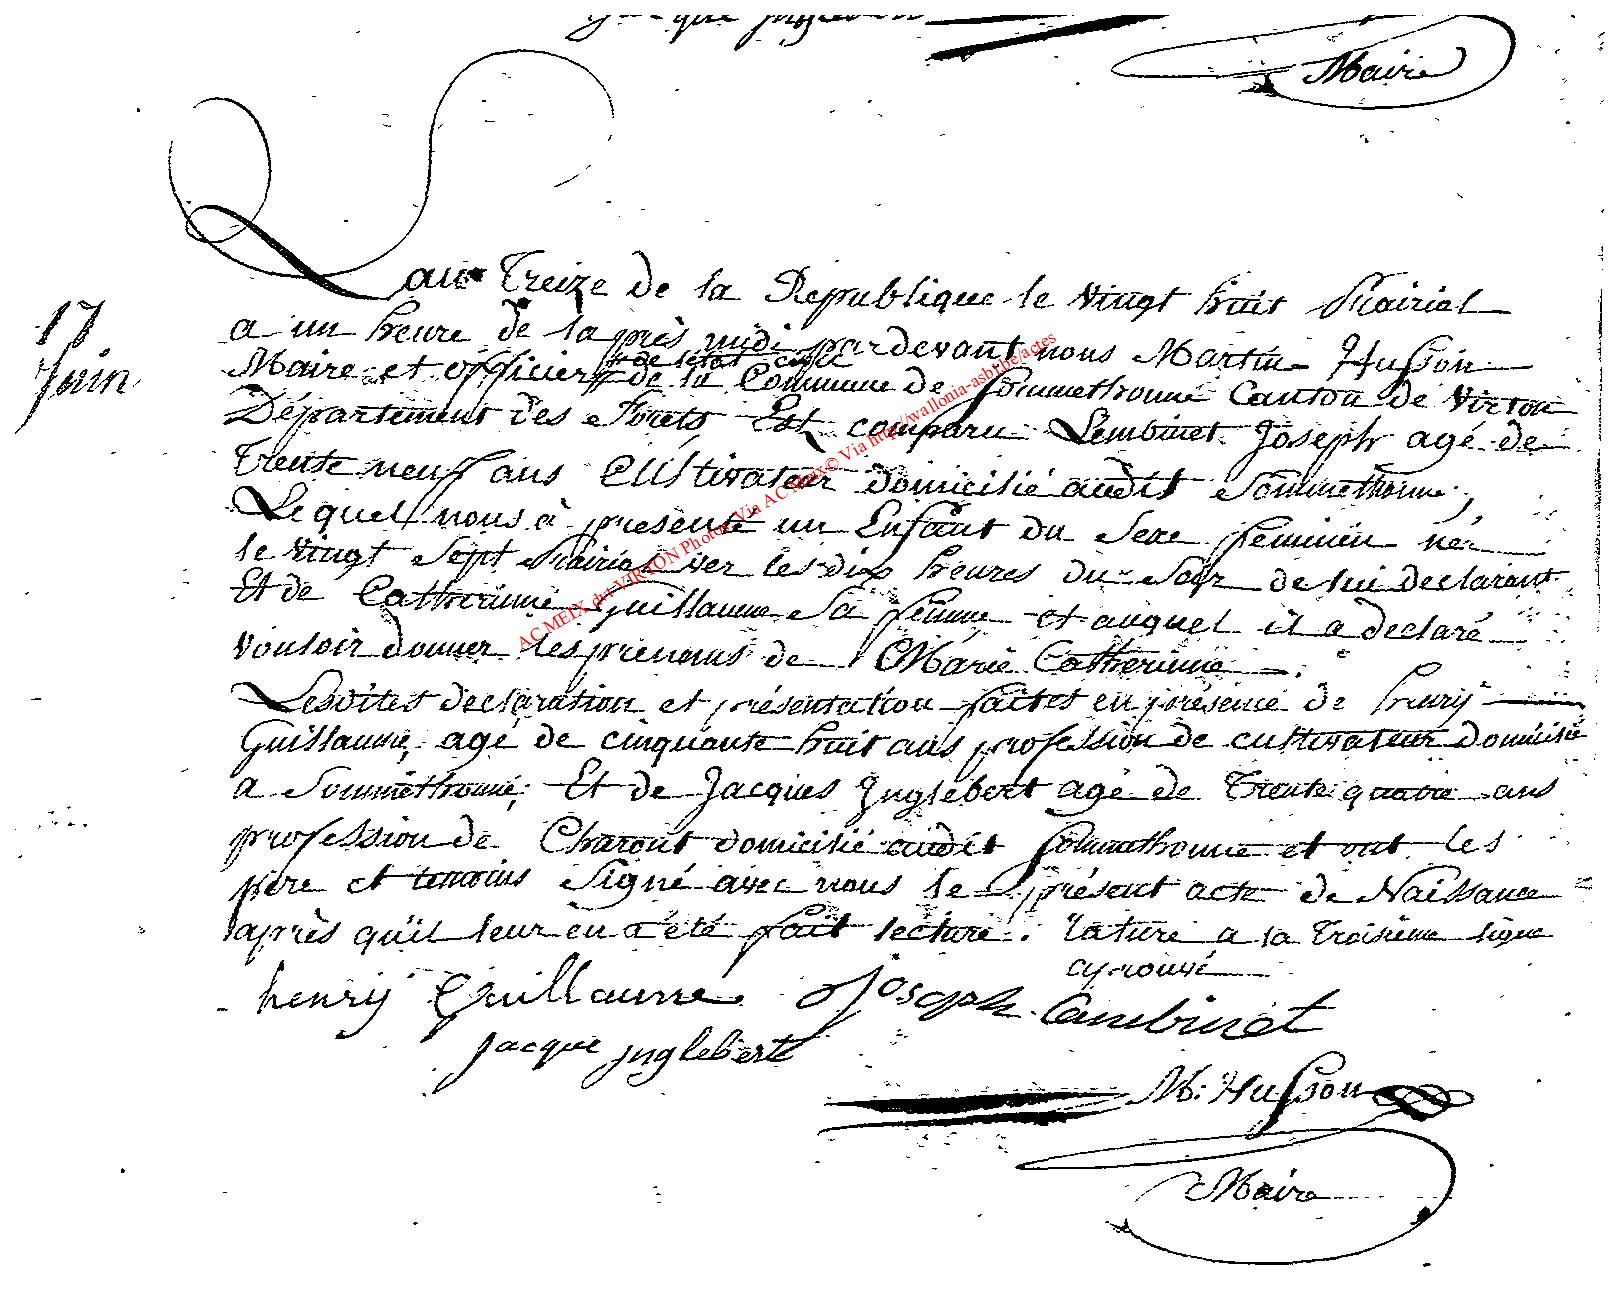 Jacque Inglebert
Maire
Lan Treize de la Republique le vingt huit Prairial
17
Juin
a un heure de la près midi pardevant nous Martin Husson
de letat civil
Maire et officier de la Commune de Sommethonne Canton de Virton
Département des Forets Est comparu Lembinet Joseph agé de
Trente neuf ans Cultivateur domicilié audit Sommethonne,
Lequel nous à presenté un Enfant du Sexe feminin née
le vingt Sept Prairial ver les dix heures du Soir de lui declarant
Et de Catherinne Guillaume Sa femme et auquel il a declaré
vouloir donner les prenoms de Marie Catherinne.
Lesdites declaration et présentation faites en présence de henry
Guillaume, agé de cinquante huit ans profession de cultivateur domicilié
a Sommethonne, Et de Jacques Inglebert agé de Trente quatre ans
profession de Charont domicilié audit Sommethonne et ont les
pere et temoins Signé avec nous le présent acte de Naissance
après quil leur en a été fait lecture. rature a la Troisieme ligne
aprouvé
henry Guillaume Joseph Lambinet
Jacque Inglebert
M: Husson
Maire
AC MEIX dvt VIRTON Photos Via AC Meix © Via http://wallonia-asbl.be/actes